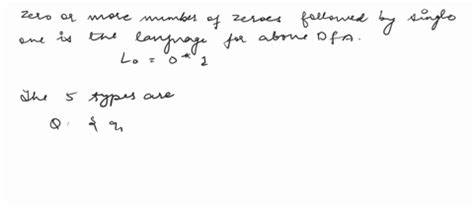 zero or more number of zeroes followed by single
one is the language for above DFA.
L₀ = 0* 1
The 5 types are
Q : { q,